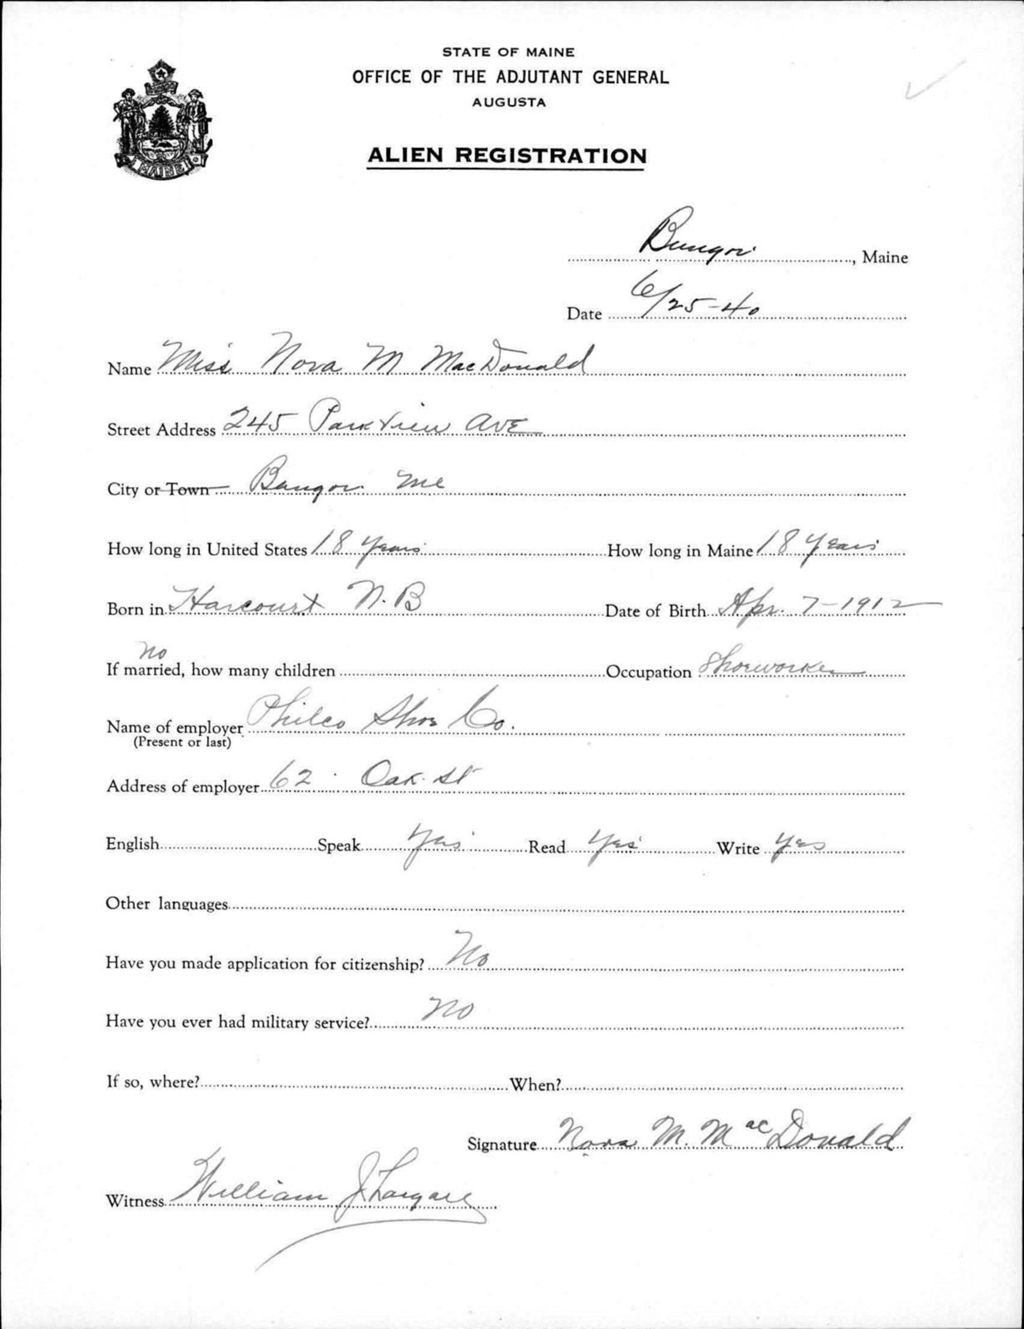 STATE OF MAINE
OFFICE OF THE ADJUTANT GENERAL
AUGUSTA
ALIEN REGISTRATION
MAINE
Bangor, Maine
Date 6/25-40
Name Miss Nora M MacDonald
Street Address 245 Parkview AVE
City or Town Bangor Me
How long in United States 18 years How long in Maine 18 years
Born in Harcourt N.B Date of Birth Apr. 7-1912
no
If married, how many children Occupation Shoeworker
Name of employer Philco Shoe Co.
(Present or last)
Address of employer 62 Oak St
English Speak Yes Read Yes Write Yes
Other languages
Have you made application for citizenship? No
Have you ever had military service? no
If so, where? When?
Signature Nora M. MacDonald
Witness William J.